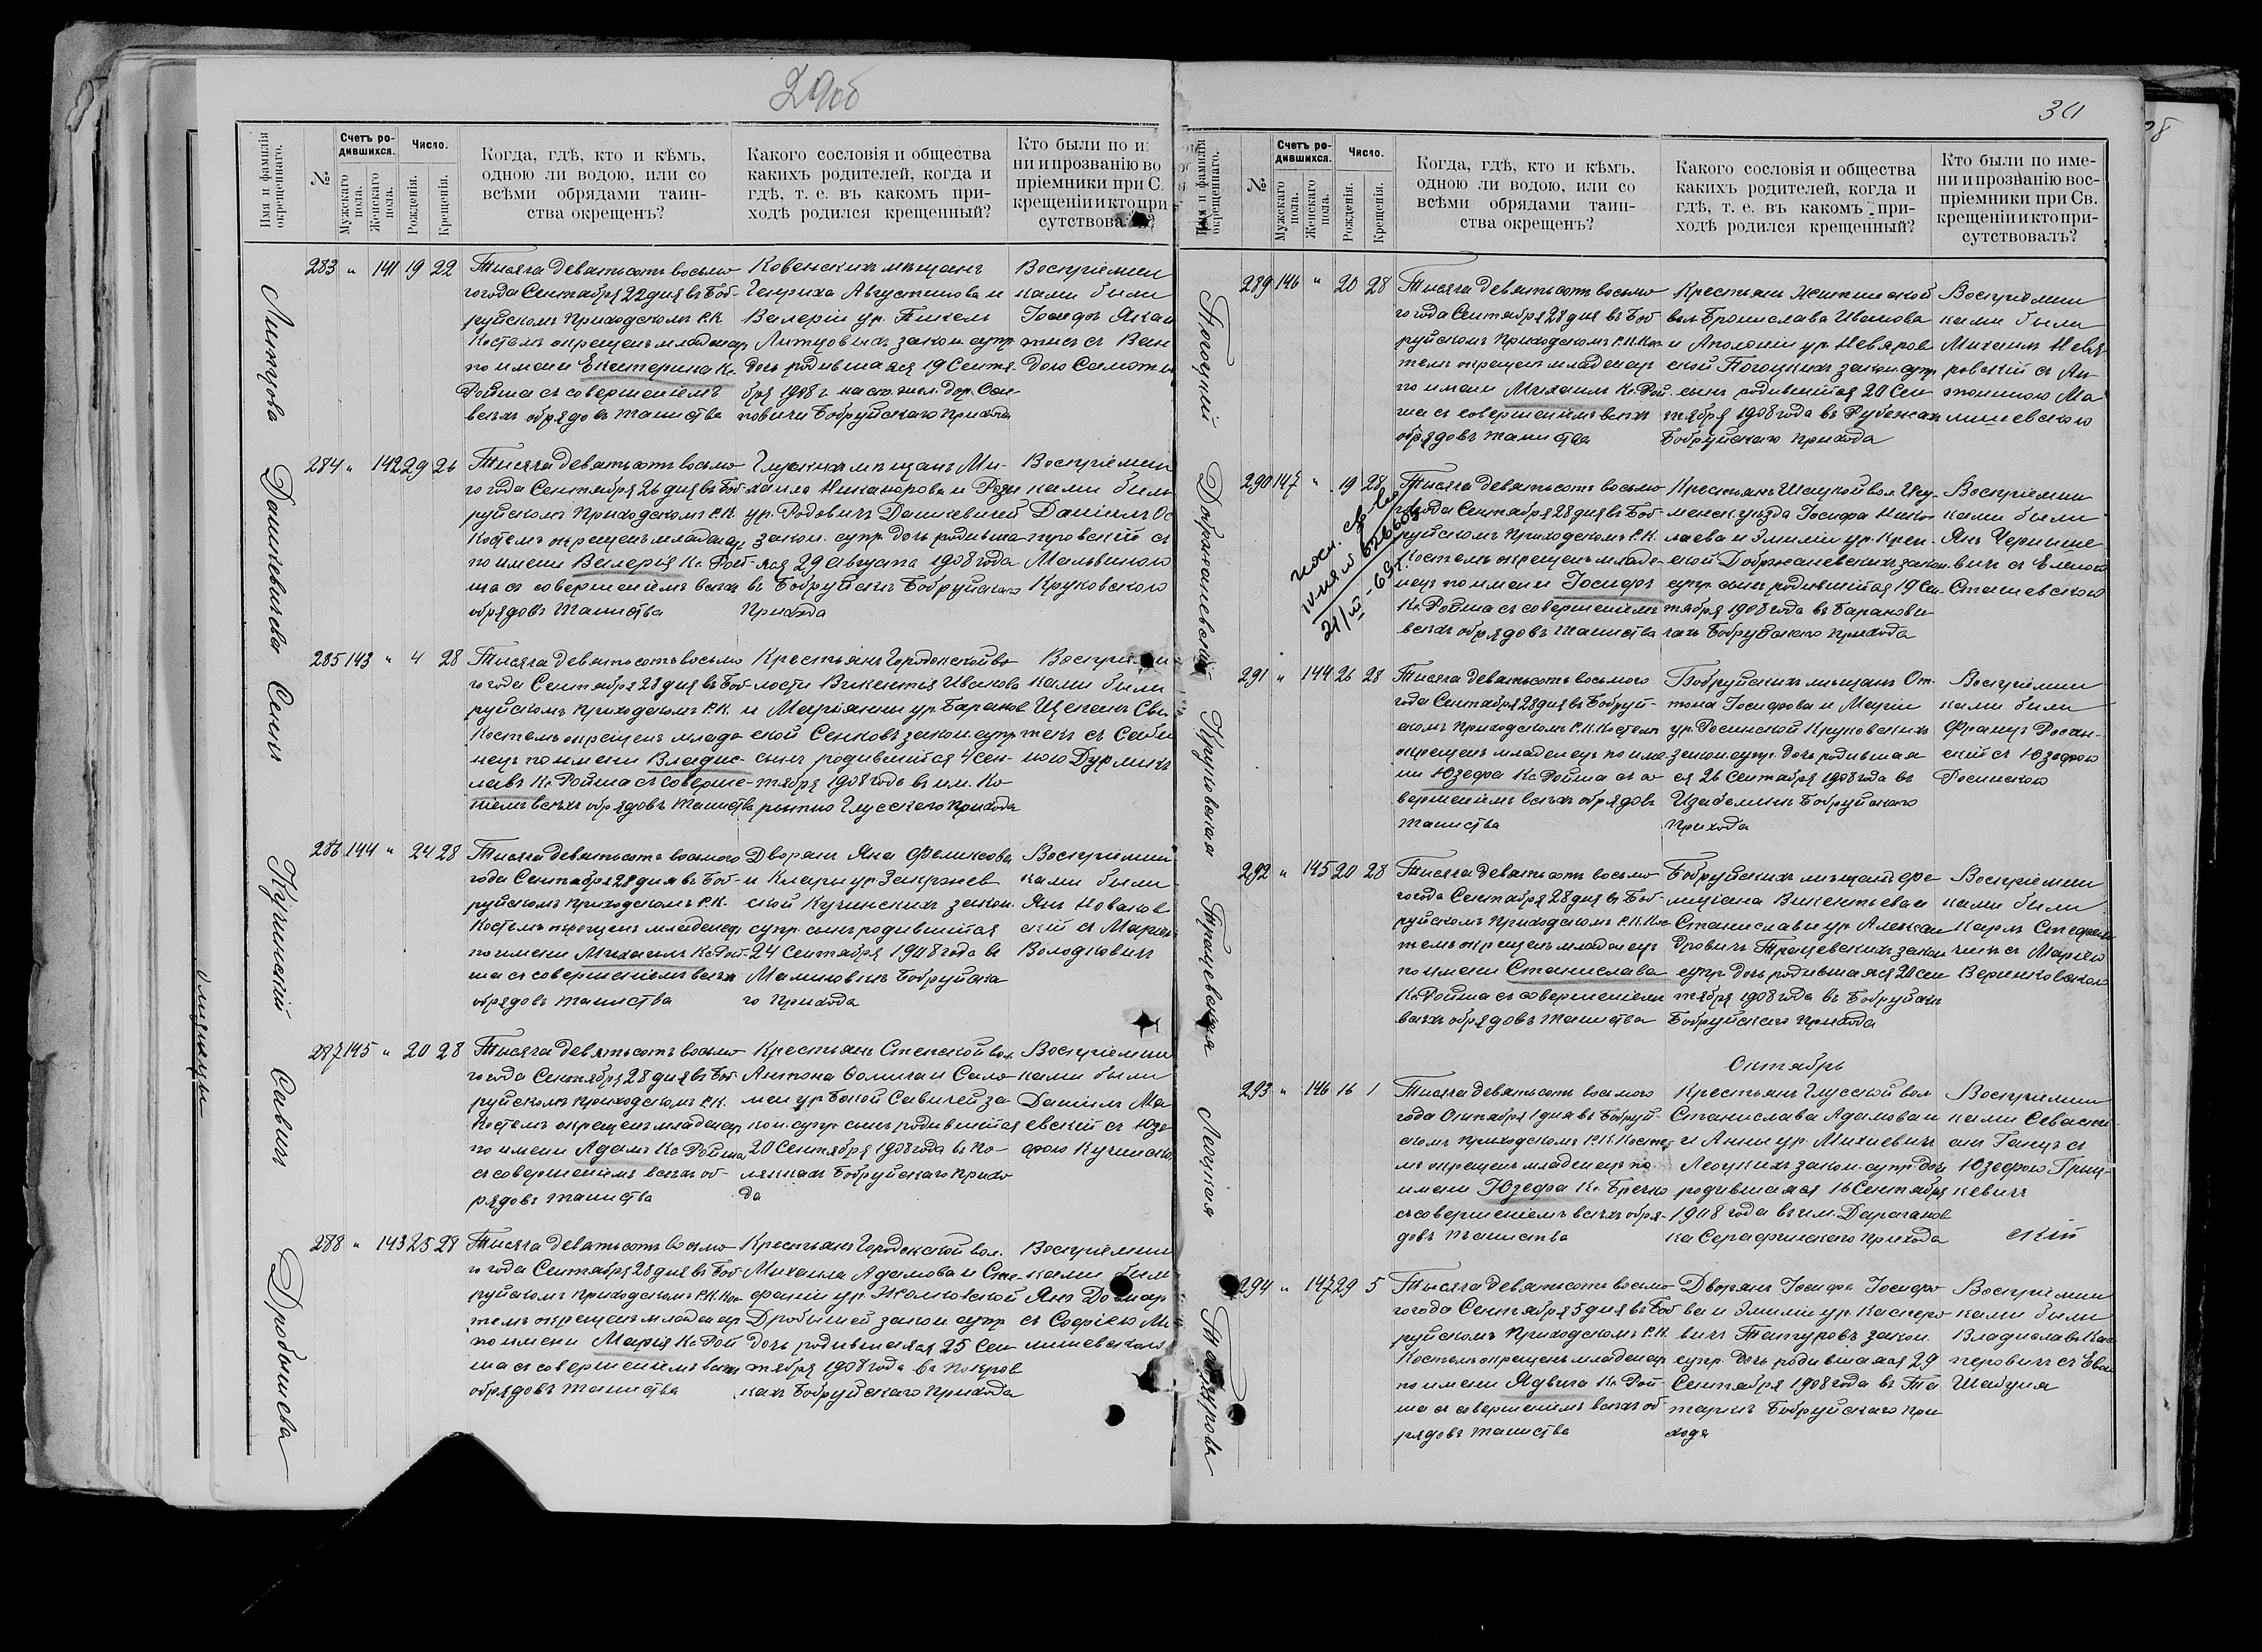 29об
Имя и фамилія окрещеннаго.
№
Счетъ родившихся.
Мужскаго пола.
Женскаго пола.
Число.
Рожденія.
Крещенія.
Когда, гдѣ, кто и кѣмъ,
одною ли водою, или со
всѣми обрядами таин-
ства окрещенъ?
Какого сословія и общества
какихъ родителей, когда и
гдѣ, т. е. въ какомъ при-
ходѣ родился крещенный?
Кто были по и
ни и прозванію во
пріемники при С.
крещеніи и кто при
сутствова
Литцова
283 " 141 19 22
Тысяча девятьсотъ восьмо
го года Сентября 22 дня въ Боб-
руйскомъ Приходскомъ Р.К.
Костелѣ окрещенъ младенецъ
по имени Екатерина Кс.
Ройша съ совершеніемъ
всѣхъ обрядовъ таинства
Ковенскихъ мѣщанъ
Генриха Августинова и
Валеріи ур.
Литцовыхъ закон. супр
дочь родившаяся 19 Сентя
бря 1908 г. на ст. жел. дор. Оси-
повичи Бобруйскаго Прихода
Воспріемни
ками были
Іосифъ
съ Ван
дою
Дашкевичева
284 " 142 29 26
Тысяча девятьсотъ восьмо
го года Сентября 26 дня въ Боб
руйскомъ Приходскомъ Р.К.
Костелѣ окрещенъ младенецъ
по имени Валерія Кс. Рой-
ша съ совершеніемъ всѣхъ
обрядовъ таинства
Глускихъ мѣщанъ Ми-
хаила Никанорова и Розы
ур. Родовичъ Дашкевичей
закон. супр. дочь родивша
яся 29 Августа 1908 года
въ Бобруйскѣ Бобруйскаго
Прихода
Воспріемни
ками были
Даніилъ Ос
тровскій съ
Мальвиною
Круковскою
Сенкъ
285 143 " 4 28
Тысяча девятьсотъ восьмо
го года Сентября 28 дня въ Боб
руйскомъ Приходскомъ Р.К.
Костелѣ окрещенъ младе
нецъ по имени Владис-
лавъ Кс. Ройша съ соверше-
ніемъ всѣхъ обрядовъ таинства
Крестьянъ Городокской во
лости Викентія Иванова
и Маріанны ур. Баранов
ской Сенковъ закон. супр
сынъ родившійся 4 Сен-
тября 1908 года въ им. Ко
Глусскаго Прихода
Воспріемни
ками были
съ Саби
ною
Кучинскій
286 144 " 24 28
Тысяча девятьсотъ восьмого
года Сентября 28 дня въ Боб-
руйскомъ Приходскомъ Р.К.
Костелѣ окрещенъ младенецъ
по имени Михаилъ Кс. Рой-
ша съ совершеніемъ всѣхъ
обрядовъ таинства
Дворянъ Яна Феликсова
и Клары ур. Закржев
ской Кучинскихъ закон.
супр. сынъ родившійся
24 Сентября 1908 года въ
Малиновкѣ Бобруйска
го Прихода
Воспріемни
ками были
Янъ Новаков
скій съ Марьею
Володковичъ
Савичъ
287 145 " 20 28
Тысяча девятьсотъ восьмо
го года Сентября 28 дня въ Боб
руйскомъ Приходскомъ Р.К.
Костелѣ окрещенъ младенецъ
по имени Адамъ Кс. Ройша
съ совершеніемъ всѣхъ об-
рядовъ таинства
Крестьянъ Степской вол.
Антона Фомича и Сало
меи ур. Савичей за
кон. супр. сынъ родившійся
20 Сентября 1908 года въ По-
лянкахъ Бобруйскаго Прихо
да
Воспріемни
ками были
Даніилъ Ма
евскій съ Юзе
фою Кучинско
Дробышева
288 " 143 25 28
Тысяча девятьсотъ восьмо
го года Сентября 28 дня въ Боб
руйскомъ Приходскомъ Р.К. Кос
телѣ окрещенъ младенецъ
по имени Марія Кс. Рой
ша съ совершеніемъ всѣхъ
обрядовъ таинства
Крестьянъ Городокской вол.
Михаила Адамова и Сте-
фаніи ур. Жолковской
Дробышей закон. супр
дочь родившаяся 25 Сен
тября 1908 года въ Покров
кахъ Бобруйскаго Прихода
Воспріемни
ками были
Янъ
съ Софіею Ма
линевскою
30
Имя и фамилія окрещеннаго.
№
Счетъ родившихся.
Мужскаго пола.
Женскаго пола.
Число.
Рожденія.
Крещенія.
Когда, гдѣ, кто и кѣмъ,
одною ли водою, или со
всѣми обрядами таин-
ства окрещенъ?
Какого сословія и общества
какихъ родителей, когда и
гдѣ, т. е. въ какомъ при-
ходѣ родился крещенный?
Кто были по име-
ни и прозванію вос-
пріемники при Св.
крещеніи и кто при-
сутствовалъ?
Погоцкій
289 146 " 20 28
Тысяча девятьсотъ восьмо
го года Сентября 28 дня въ Боб
руйскомъ Приходскомъ Р.К. Кос
телѣ окрещенъ младенецъ
по имени Михаилъ Кс. Рой
ша съ совершеніемъ всѣхъ
обрядовъ таинства
Крестьянъ Житинской
вол. Бронислава Иванова
и Аполоніи ур. Невяров
ской Погоцкихъ закон. супр
сынъ родившійся 20 Сен
тября 1908 года въ Рубежахъ
Бобруйскаго Прихода
Воспріемни
ками были
Михаилъ Невя
ровскій съ Ан
тониною Ма
линевскою
Добржаневскій
290 147 " 19 28
Тысяча девятьсотъ восьмо
го года Сентября 28 дня въ Боб
руйскомъ Приходскомъ Р.К.
Костелѣ окрещенъ младе
нецъ по имени Іосифъ
Кс. Ройша съ совершеніемъ
всѣхъ обрядовъ таинства
Крестьянъ Шацкой вол. Игу-
менск. уѣзда Іосифа Нико
лаева и Эмиліи ур. Креп-
ской Добржаневскихъ закон.
супр. сынъ родившійся 19 Сен
тября 1908 года въ Баранови
чахъ Бобруйскаго Прихода
Воспріемни
ками были
Янъ Черныше
вичъ съ Еленою
Сташевскою
Круковская
291 " 144 26 28
Тысяча девятьсотъ восьмого
года Сентября 28 дня въ Бобруй-
скомъ Приходскомъ Р.К. Костелѣ
окрещенъ младенецъ по име
ни Юзефа Кс. Ройша съ со
вершеніемъ всѣхъ обрядовъ
таинства
Бобруйскихъ мѣщанъ Ан-
тона Іосифова и Маріи
ур. Росинской Круковскихъ
закон. супр. дочь родившая
ся 26 Сентября 1908 года въ
Изабелинѣ Бобруйскаго
Прихода
Воспріемни
ками были
Францъ Росин-
скій съ Юзефою
Росинскою
Трацевская
292 " 145 20 28
Тысяча девятьсотъ восьмо
го года Сентября 28 дня въ Боб
руйскомъ Приходскомъ Р.К. Кос
телѣ окрещенъ младенецъ
по имени Станислава
Кс. Ройша съ совершеніемъ
всѣхъ обрядовъ таинства
Бобруйскихъ мѣщанъ Фе
лиціана Викентьева и
Станиславы ур. Алексан
дровичъ Трацевскихъ закон
супр. дочь родившаяся 20 Сен
тября 1908 года въ Бобруйскѣ
Бобруйскаго Прихода
Воспріемни
ками были
Карлъ Стефано
чикъ съ Маріею
Веринковскою
Октябрь
Леоцкая
293 " 146 16 1
Тысяча девятьсотъ восьмого
года Октября 1 дня въ Бобруй-
скомъ Приходскомъ Р.К. Косте
лѣ окрещенъ младенецъ по
имени Юзефа Кс. Бречко
съ совершеніемъ всѣхъ обря-
довъ таинства
Крестьянъ Глусской вол
Станислава Адамова и
и Анны ур. Михневичъ
Леоцкихъ закон. супр. дочь
родившаяся 16 Сентября
1908 года въ им. Дараганов
ка Серафинскаго Прихода
Воспріемни
ками Севасти
анъ Ганусъ съ
Юзефою Гриц-
кевичъ
скій
Татурова
294 " 147 29 5
Тысяча девятьсотъ восьмо
го года Сентября 5 дня въ Боб
руйскомъ Приходскомъ Р.К.
Костелѣ окрещенъ младенецъ
по имени Ядвига Кс. Рой-
ша съ совершеніемъ всѣхъ об
рядовъ таинства
Дворянъ Іосифа Іосифо
ва и Эмиліи ур. Касперо
вичъ Татуровъ закон.
супр. дочь родившаяся 29
Сентября 1908 года въ Та
таркѣ Бобруйскаго При
хода
Воспріемни
ками были
Владиславъ Кас
перовичъ съ Евою
Шабуня